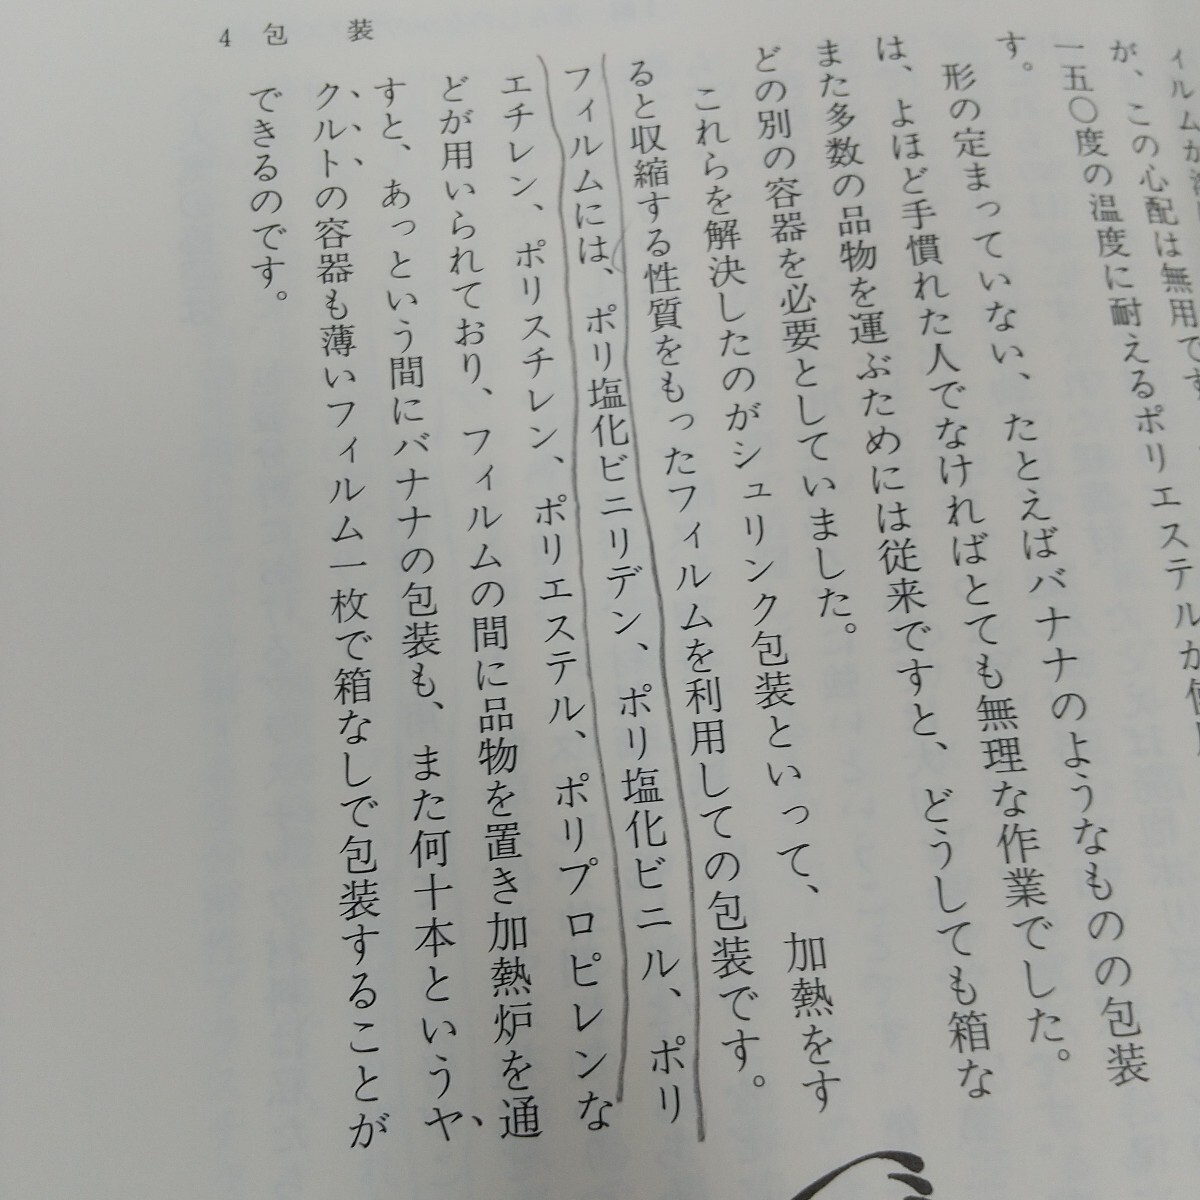 4 包 装
が、この心配は無用です
一五〇度の温度に耐えるポリエステルが使
す。
形の定まっていない、たとえばバナナのようなものの包装
は、よほど手慣れた人でなければとても無理な作業でした。
また多数の品物を運ぶためには従来ですと、どうしても箱な
どの別の容器を必要としていました。
これらを解決したのがシュリンク包装といって、加熱をす
ると収縮する性質をもったフィルムを利用しての包装です。
フィルムには、ポリ塩化ビニリデン、ポリ塩化ビニル、ポリ
エチレン、ポリスチレン、ポリエステル、ポリプロピレンな
どが用いられており、フィルムの間に品物を置き加熱炉を通
すと、あっという間にバナナの包装も、また何十本というヤ
クルトの容器も薄いフィルム一枚で箱なしで包装することが
できるのです。